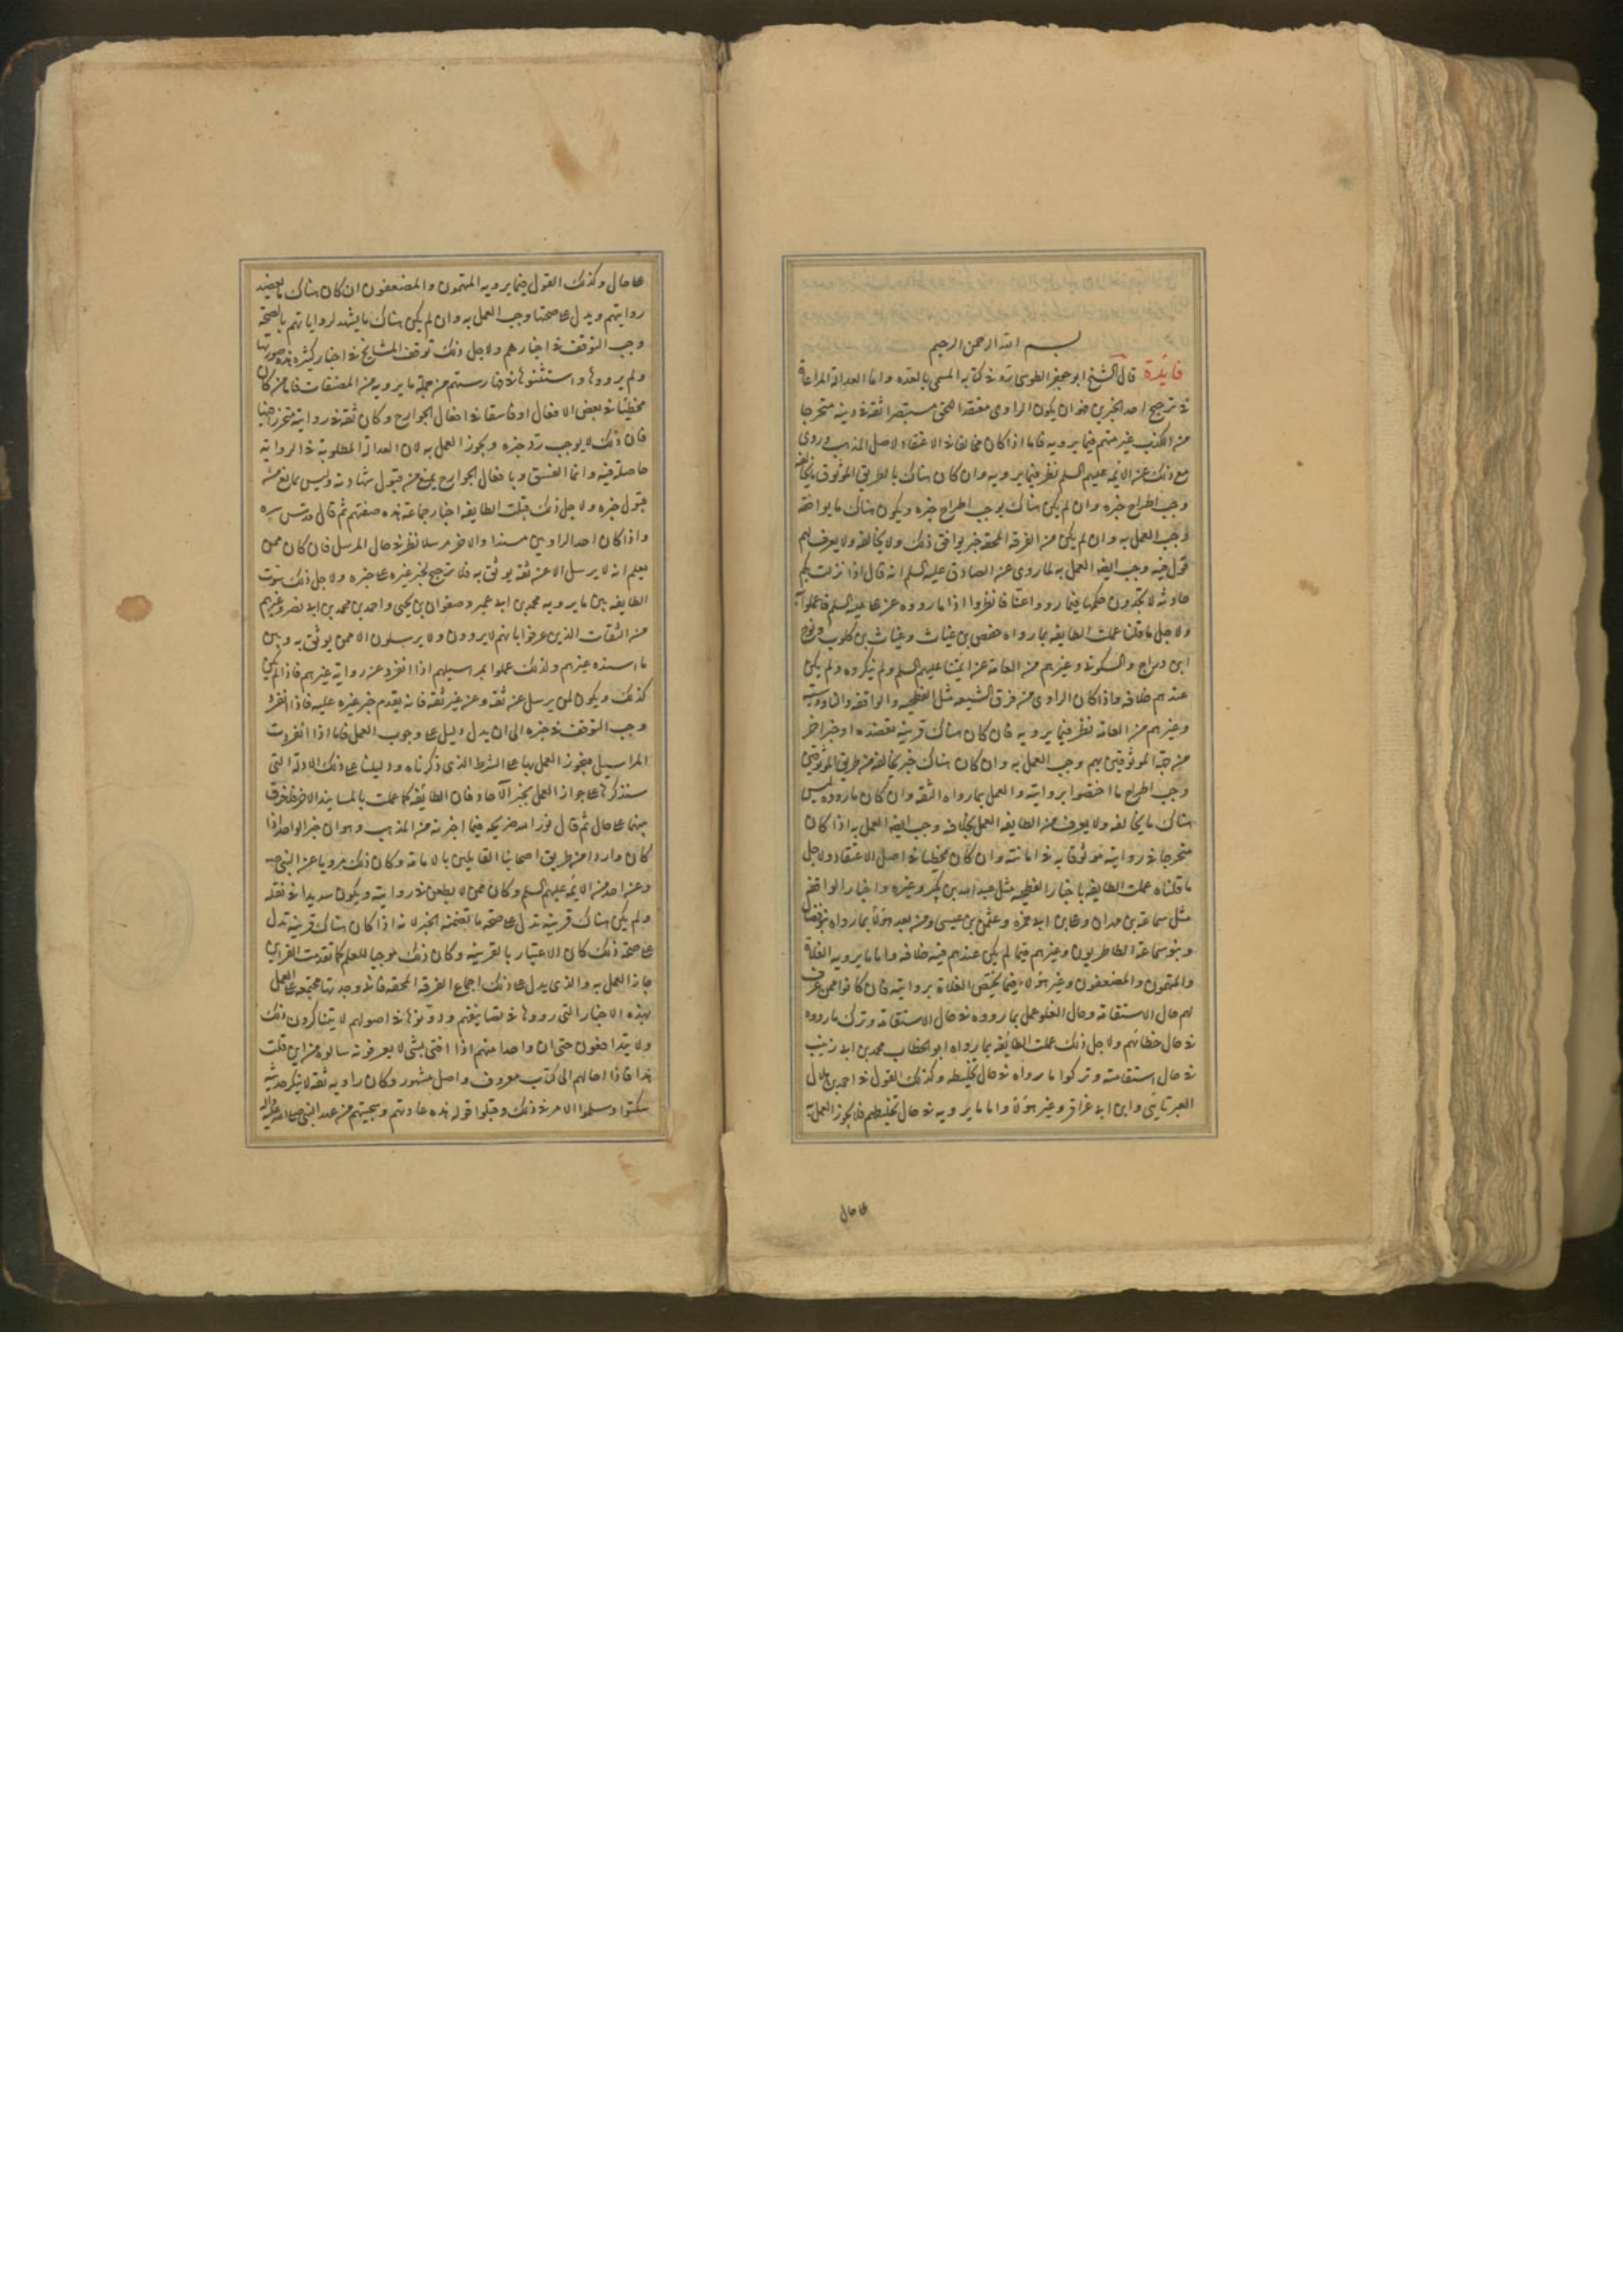 بسم الله الرحمن الرحيم
فائدة قال الشيخ ابو جعفر الطوسي ره في كتابه المسمى بالعده واما العدالة المراعاة
في ترجيح احد الخبرين فهو ان يكون الراوى معتقدا للحق مستبصرا ثقة في دينه متحرجا
من الكذب غير متهم فيما يرويه فاما اذا كان مخالفا في الاعتقاد لاصل المذهب وروى
مع ذلك عن الائمه عليهم السلم نظر فيما يرويه وان كان هناك بالطريق الموثوق ما يخالفه
وجب اطراح خبره وان لم يكن هناك يوجب اطراح خبره ويكون هناك ما يوافقه
وجب العمل به وان لم يكن من الفرقه المحقه خبر يوافق ذلك ولا يخالفه ولا يعرف لهم
قول فيه وجب ايضا العمل به لما روى عن الصادق عليه السلم انه قال اذا نزلت بكم
حادثه لا تجدون حكمها فيما رووا عنا فانظروا اذا ما رووه عن على عليه السلم فاعملوا به
ولاجل ما قلنا عملت الطايفه بما رواه حفص بن غياث وغياث بن كلوب ونوح
ابن دراج والسكونى وغيرهم من العامة عن ائمتنا عليهم السلم ولم ينكروه ولم يكن
عندهم خلافه واذا كان الراوى من فرق الشيعه مثل الفطحيه والواقفه والناووسيه
وغيرهم من العامه نظر فيما يرويه فان كان هناك قرينه تعضده او خبر اخر
من جهة الموثوقين بهم وجب العمل به وان كان هناك خبر يخالفه من طريق الموثوقين
وجب اطراح ما اختصوا بروايته والعمل بما رواه الثقه وان كان ما رووه ليس
هناك ما يخالفه ولا يعرف من الطايفه العمل بخلافه وجب ايضا العمل به اذا كان
متحرجا في روايته موثوقا به في امانته وان كان مخطئا في اصل الاعتقاد ولاجل
ما قلناه عملت الطايفه باخبار الفطحيه مثل عبد الله بن بكير وغيره واخبار الواقفه
مثل سماعة بن مهران وعلى بن ابى حمزه وعثمن بن عيسى ومن بعد هؤلاء بما رواه بنو فضال
وبنو سماعة الطاطريون وغيرهم فيما لم يكن عندهم فيه خلافه واما ما يرويه الغلاة
والمتهمون والمضعفون وغير هؤلاء فيما يختص الغلاة بروايته فان كانوا ممن عرف
لهم حال الاستقامة وحال الغلو عمل بما رووه في حال الاستقامة وترك ما رووه
في حال خطائهم ولاجل ذلك عملت الطائفه بما رواه ابو الخطاب محمد بن ابى زينب
في حال استقامته وتركوا ما رواه في حال تخليطه وكذلك القول في احمد بن هلال
العبرتايى وابن ابى عزاقر وغير هؤلاء واما ما يرويه في حال تخليطهم فلا يجوز العمل به
على حال
على حال وكذلك القول فيما يرويه المتهمون والمضعفون ان كان هناك ما يعضد
روايتهم ويدل على صحتها وجب العمل به وان لم يكن هناك ما يشهد لرواياتهم بالصحة
وجب التوقف في اخبارهم ولاجل ذلك توقف المشايخ في اخبار كثيره هذه صورتها
ولم يرووها واستثنوها في فهارستهم من جملة ما يرويه من المصنفات فاما من كان
مخطئا في بعض الافعال او فاسقا في افعال الجوارح وكان ثقة في روايته متحرزا فيها
فان ذلك لا يوجب رد خبره ويجوز العمل به لان العدالة المطلوبة في الرواية
حاصلة فيه وانما الفسق وبافعال الجوارح يمنع من قبول شهادته وليس بمانع من
قبول خبره ولاجل ذلك قبلت الطايفه اخبار جماعة هذه صفتهم ثم قال قدس سره
واذا كان احد الراويين مسندا والاخر مرسلا نظر في حال المرسل فان كان ممن
يعلم انه لا يرسل الا عن ثقه يوثق به فلا ترجيح لخبر غيره على خبره ولاجل ذلك سوت
الطايفه بين ما يرويه محمد بن ابى عمير وصفوان بن يحيى واحمد بن محمد بن ابى نصر وغيرهم
من الثقات الذين عرفوا بانهم لا يروون ولا يرسلون الا عمن يوثق به وبين
ما اسنده غيرهم ولذلك عملوا بمراسيلهم اذا انفرد عن رواية غيرهم فاذا لم يكن
كذلك ويكون لمن يرسل عن ثقه وعن غير ثقه فانه يقدم خبر غيره عليه فاذا انفرد
وجب التوقف في خبره الى ان يدل دليل على وجوب العمل فاما اذا انفردت
المراسيل فيجوز العمل بها على الشرط الذى ذكرناه ودليلنا على ذلك الادلة التى
سنذكرها على جواز العمل بخبر الآحاد فان الطائفه كما عملت بالمسانيد الاخر فلا فرق
بينهما على حال ثم قال نور الله ضريحه فيما اخترته من المذهب وهو ان خبر الواحد اذا
كان واردا من طريق اصحابنا القايلين بالامامة وكان ذلك مرويا عن النبى ص
وعن احد من الائمه عليهم السلم وكان ممن لا يطعن في روايته ويكون سديدا في نقله
ولم يكن هناك قرينه تدل على صحة ما تضمنه الخبر لانه اذا كان هناك قرينه تدل
على صحة ذلك كان الاعتبار بالقرينه وكان ذلك موجبا للعلم كما تقدمت القراين
جاز العمل به والذى يدل على ذلك اجماع الفرقه المحقه فانى وجدتها مجتمعه على العمل
بهذه الاخبار التى رووها في تصانيفهم ودونوها في اصولهم لا يتناكرون ذلك
ولا يتدافعون حتى ان واحدا منهم اذا افتى بشى لا يعرفونه سالوه من اين قلت
هذا فاذا احالهم الى كتاب معروف واصل مشهور وكان راويه ثقه لا ينكر حديثه
سكتوا وسلموا الامر في ذلك وقبلوا قوله هذه عادتهم وسجيتهم من عهد النبى صلى الله عليه واله